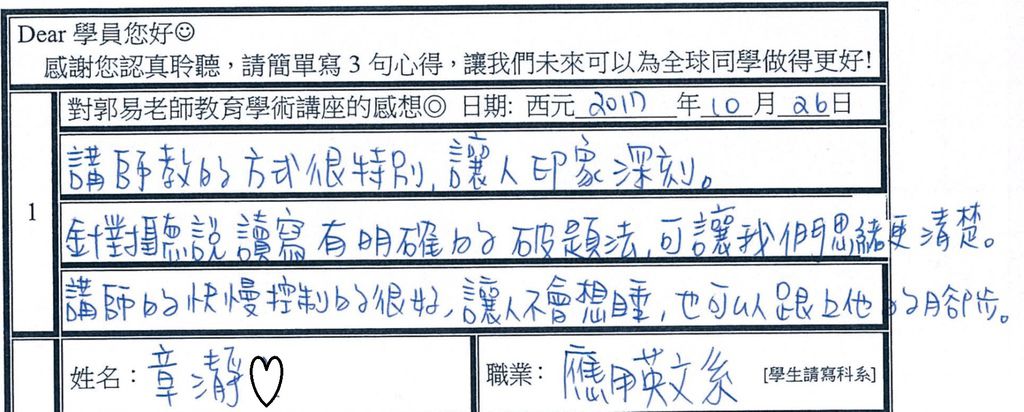 Dear 學員您好☺
感謝您認真聆聽，請簡單寫 3 句心得，讓我們未來可以為全球同學做得更好!
1
對郭易老師教育學術講座的感想◎ 日期: 西元 2017 年 10 月 26 日
講師教的方式很特別,讓人印象深刻。
針對聽說讀寫有明確的破題法,可讓我們思緒更清楚。
講師的快慢控制的很好,讓人不會想睡,也可以跟上他的腳步。
姓名：章瀞♡ 職業： 應用英文系 [學生請寫科系]